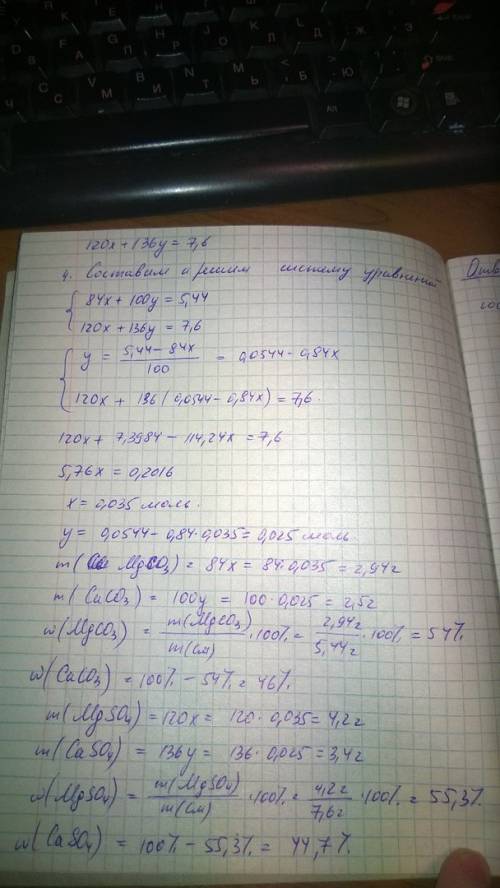 120x + 136y = 7,6
4. Составим и решим систему уравнений
84x + 100y = 5,44
120x + 136y = 7,6
y = (5,44 - 84x)/100 = 0,0544 - 0,84x
120x + 136(0,0544 - 0,84x) = 7,6.
120x + 7,3984 - 114,24x = 7,6
5,76x = 0,2016
x = 0,035 моль.
y = 0,0544 - 0,84·0,035 = 0,025 моль
m(MgCO3) = 84x = 84·0,035 = 2,94г
m(CaCO3) = 100y = 100·0,025 = 2,5г
w(MgCO3) = m(MgCO3)/m(см)·100% = 2,94г/5,44г·100% = 54%
w(CaCO3) = 100% - 54% = 46%
m(MgSO4) = 120x = 120·0,035 = 4,2г
m(CaSO4) = 136y = 136·0,025 = 3,4г
w(MgSO4) = m(MgSO4)/m(см)·100% = 4,2г/7,6г·100% = 55,3%
w(CaSO4) = 100% - 55,3% = 44,7%.
Отв